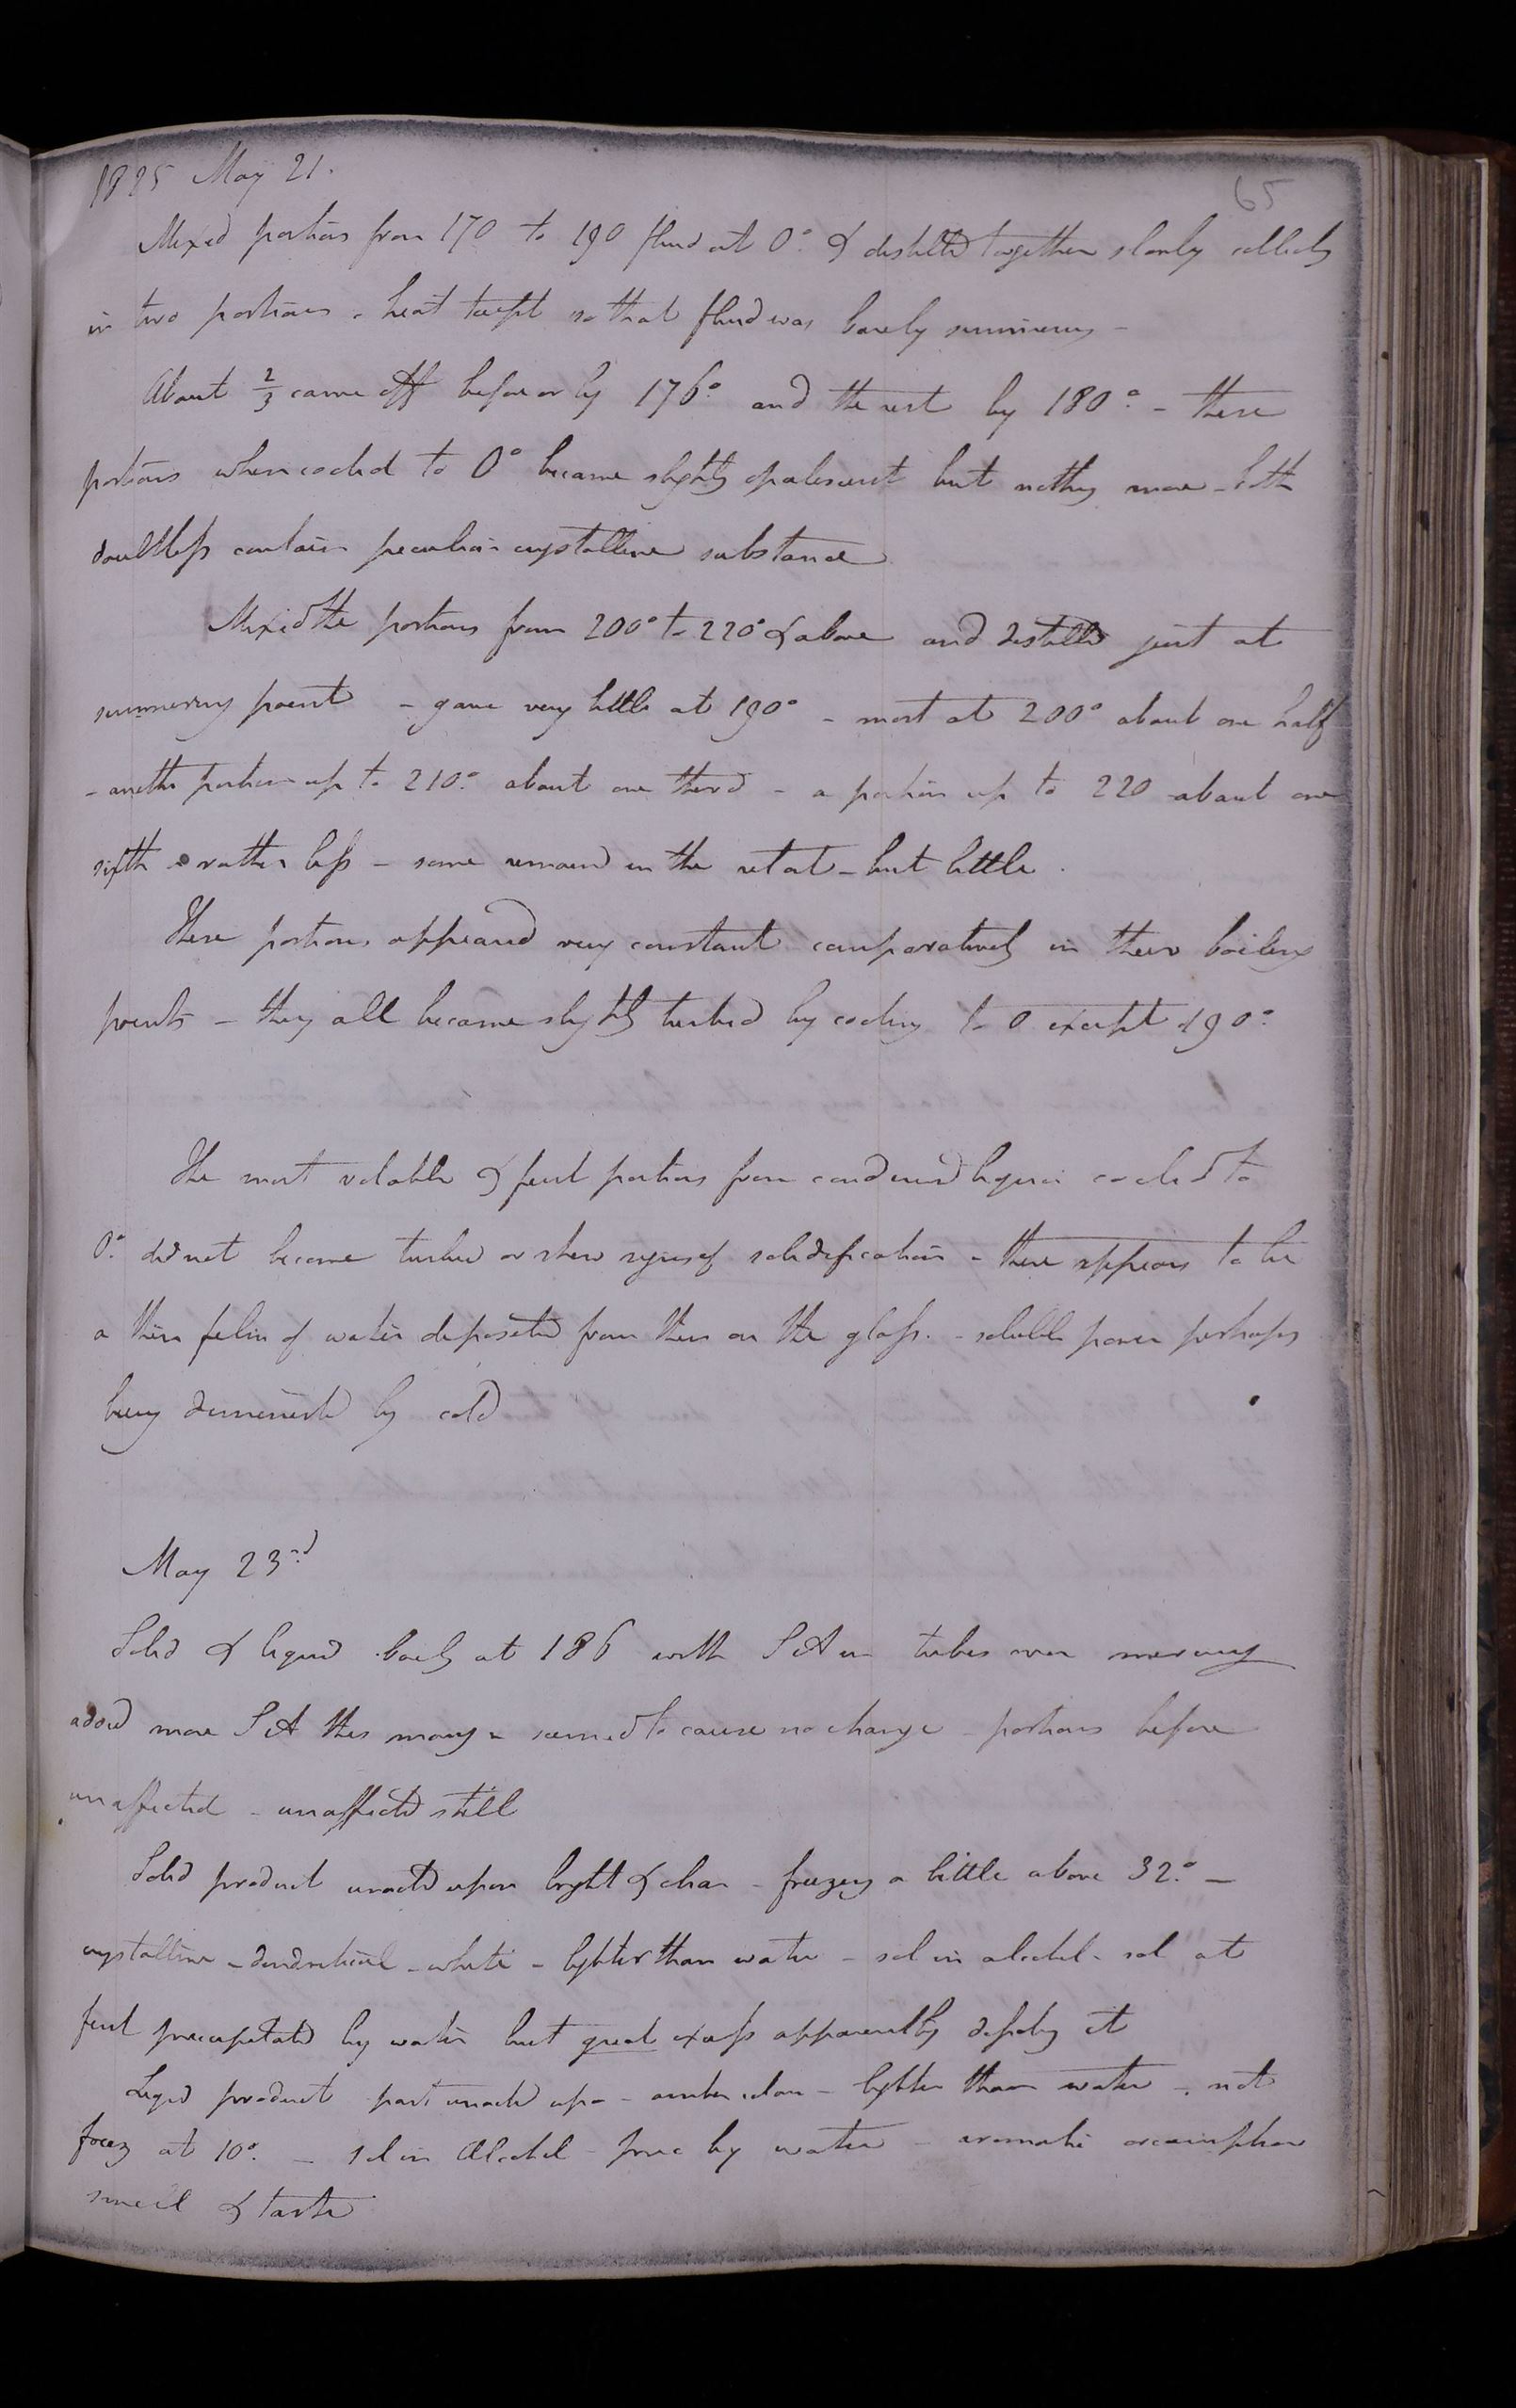 1825 May 21.
65
Mixed portions from 170 to 190 fluid at 0° & distilled together slowly collected
in two portions - heat kept so that fluid was barely simmering -
About 2/3 came off before or by 176° and the rest by 180° - these
portions when cooled to 0° became slightly opalescent but nothing more - both
doubtless contain peculiar crystalline substance
Mixed the portions from 200° to 220° & above and distilled just at
simmering point - gave very little at 190° - most at 200° about one half
- another portion up to 210° about one third - a portion up to 220 about one
sixth or rather less - some remained in the retort - but little.
These portions appeared very constant comparatively in their boiling
points - they all became slightly turbid by cooling to 0 except 190°
The most volatile & first portions from condensed liquor cooled to
0° did not become turbid or shew signs of solidification - there appears to be
a thin film of water deposited from them on the glass. - soluble power perhaps
being diminished by cold
May 23rd
Solid & liquid boilg at 186 with S A in tubes over mercury
added more S A this morng - seemed to cause no change - portions before
unaffected - unaffected still
Solid product unacted upon bright & clear - freezing a little above 32° -
crystalline - dendritical - white - lighter than water - sol in alcohol - sol at
first precipitated by water but great excess apparently dissolvg it
Liquid product part unacted upon - amber colour - lighter than water - not
freezg at 10° - sol in Alcohol - prec by water - aromatic
smell & taste